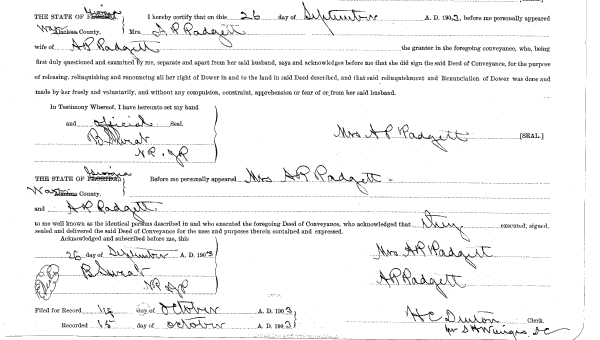 THE STATE OF Georgia I hereby certify that on this 26 day of September A. D. 1903, before me personally appeared
County. Mrs. A P Padgett
wife of A P Padgett the grantor in the foregoing conveyance, who, being
first duly questioned and examined by me, separate and apart from her said husband, says and acknowledges before me that she did sign the said Deed of Conveyance, for the purpose
of releasing, relinquishing and renouncing all her right of Dower in and to the land in said Deed described, and that said relinquishment and Renunciation of Dower was done and
made by her freely and voluntarily, and without any compulsion, constraint, apprehension or fear of or from her said husband.
In Testimony Whereof, I have hereunto set my hand
and official Seal.
Mrs A P Padgett [SEAL.]
N.P. & J.P.
THE STATE OF Georgia Before me personally appeared Mrs A P Padgett
County.
and A P Padgett
to me well known as the identical persons described in and who executed the foregoing Deed of Conveyance, who acknowledged that they executed, signed,
sealed and delivered the said Deed of Conveyance for the uses and purposes therein contained and expressed.
Acknowledged and subscribed before me, this
26 day of September A. D. 1903
Mrs A P Padgett
A P Padgett
Filed for Record day of October A. D. 1903
Recorded 15 day of October A. D. 1903
H C Clerk.